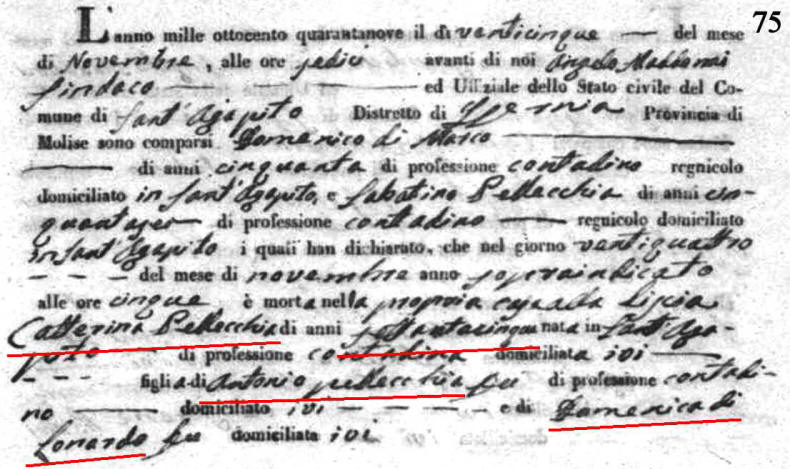 75
L'anno mille ottocento quarantanove il dì venticinque — del mese
di Novembre, alle ore sedici avanti di noi Angelo
Sindaco — ed Uffiziale dello Stato civile del Co-
mune di Sant'Agapito Distretto di Isernia Provincia di
Molise sono comparsi Domenico di Marco —
— di anni cinquanta di professione contadino regnicolo
domiciliato in Sant'Agapito, e Sabatino Pellecchia di anni cin-
quantasei — di professione contadino — regnicolo domiciliato
in Sant'Agapito i quali han dichiarato, che nel giorno ventiquattro
— — — del mese di novembre anno sopraindicato
alle ore cinque è morta nella propria casa
Catterina Pellecchia di anni settantacinque nata in Sant'Aga-
pito — di professione contadina domiciliata ivi —
— — — figlia di Antonio pellecchia fu di professione contadi-
no — domiciliato ivi — — — — e di Domenica di
Lonardo fu domiciliata ivi